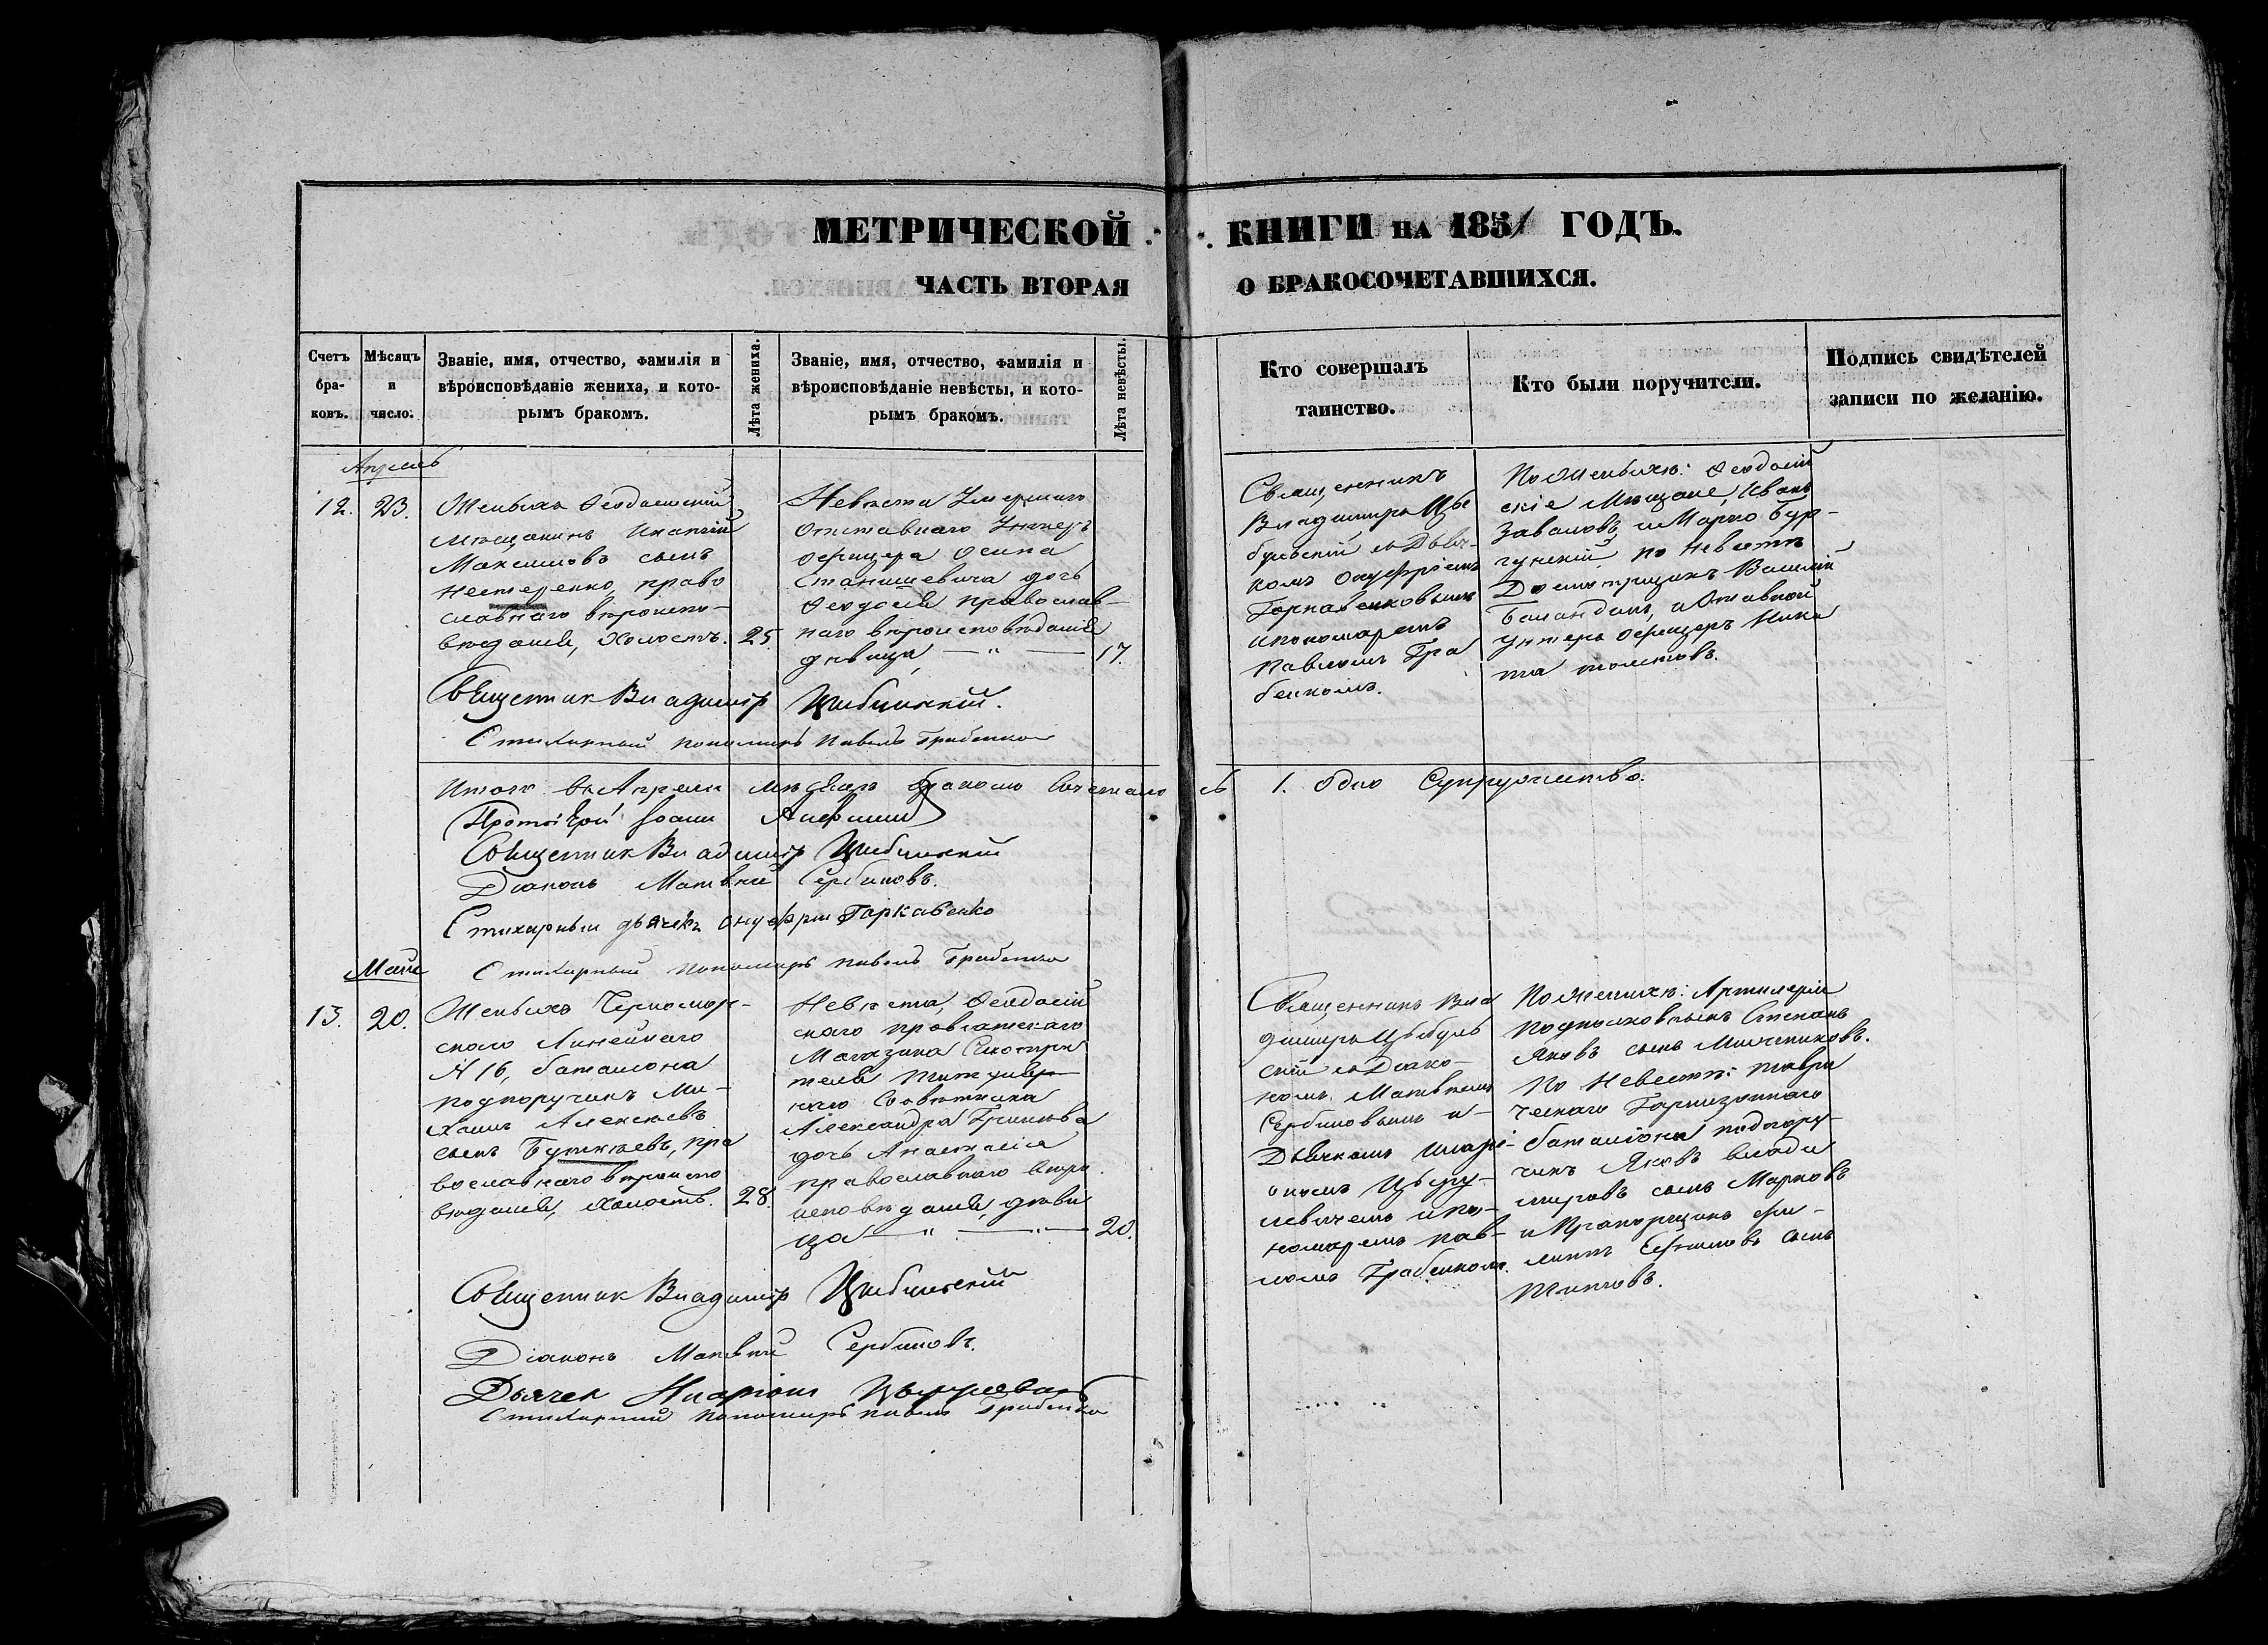 МЕТРИЧЕСКОЙ КНИГИ на 1851 ГОДЪ.
ЧАСТЬ ВТОРАЯ О БРАКОСОЧЕТАВШИХСЯ.
Счетъ бра-ковъ.
Мѣсяцъ и число.
Званіе, имя, отчество, фамилія и
вѣроисповѣданіе жениха, и кото-
рымъ бракомъ.
Лѣта жениха.
Званіе, имя, отчество, фамилія и
вѣроисповѣданіе невѣсты, и кото-
рымъ бракомъ.
Лѣта невѣсты.
Кто совершалъ
таинство.
Кто были поручители.
Подпись свидѣтелей
записи по желанію.
Апрель
12. 23.
Женихъ Ѳеодосійскій
мѣщанинъ
Максимовъ сынъ
Нестеренко, право
славнаго вѣроиспо-
вѣданія, Холостъ. 25.
Невѣста Умершаго
Отставнаго Унтеръ
офицера Осипа
Станишевича дочь
Ѳеодосія православ-
наго вѣроисповѣданія
дѣвица, — " — 17.
Священникъ
Владимиръ Цы
бульскій съ Дьяч-
комъ Онуфріемъ
Горкавенковымъ
и пономаремъ
Павломъ Гра
бенкомъ.
По Женихѣ: Ѳеодосій
скіе Мѣщане, Иванъ
Заваловъ, и Марко Бур-
гунскій, по Невѣстѣ
Василій
и Отставной
Унтеръ офицеръ Ники
та Толстовъ.
Священник Владимір Цибульскій.
Стихарный пономарь Павелъ Грабенко
Итого въ Апрелѣ мѣсяцѣ бракомъ сочеталось 1. одно Супружество.
Протоіерей Іоаннъ
Священник Владимір Цибульскій
Діаконъ Матвѣй Сербиновъ.
Стихарный дьячекъ Онуфрій Горкавенко
Стихарный пономарь Павелъ Грабенко
Маій
13. 20.
Женихъ Черномор-
скаго Линейнаго
№ 16, баталіона
подпоручикъ Ми-
хаилъ Алексѣевъ
сынъ Буткѣевъ, пра
вославнаго вѣроиспо
вѣданія, Холостъ. 28.
Невѣста, Ѳеодосій
скаго провіатскаго
Магазина Смотри
теля Титуляр-
наго Совѣтника
Александра Гринева
дочь Анастасія
православнаго вѣро
исповѣданія, дѣви
ца — " — " — 20.
Священникъ Вла
димиръ Цыбуль
скій съ Діако-
номъ Матвѣемъ
Сербиновымъ и
Дьячкомъ Иларі-
ономъ Цыгу-
левичемъ и по-
номаремъ Пав-
ломъ Грабенком.
По Женихѣ: Артилеріи
подполковникъ Степанъ
Яковъ сынъ Мясниковъ.
По Невестѣ: Таври
ческаго Гарнизоннаго
баталіона подпору-
чикъ Яковъ Влади
мировъ сынъ Марковъ
и Прапорщикъ Фи-
липъ Ефимовъ сынъ
Титовъ.
Священник Владимір Цибульскій
Діаконъ Матвѣй Сербиновъ.
Дьячек Иларіон
Стихарный пономарь Павелъ Грабенко